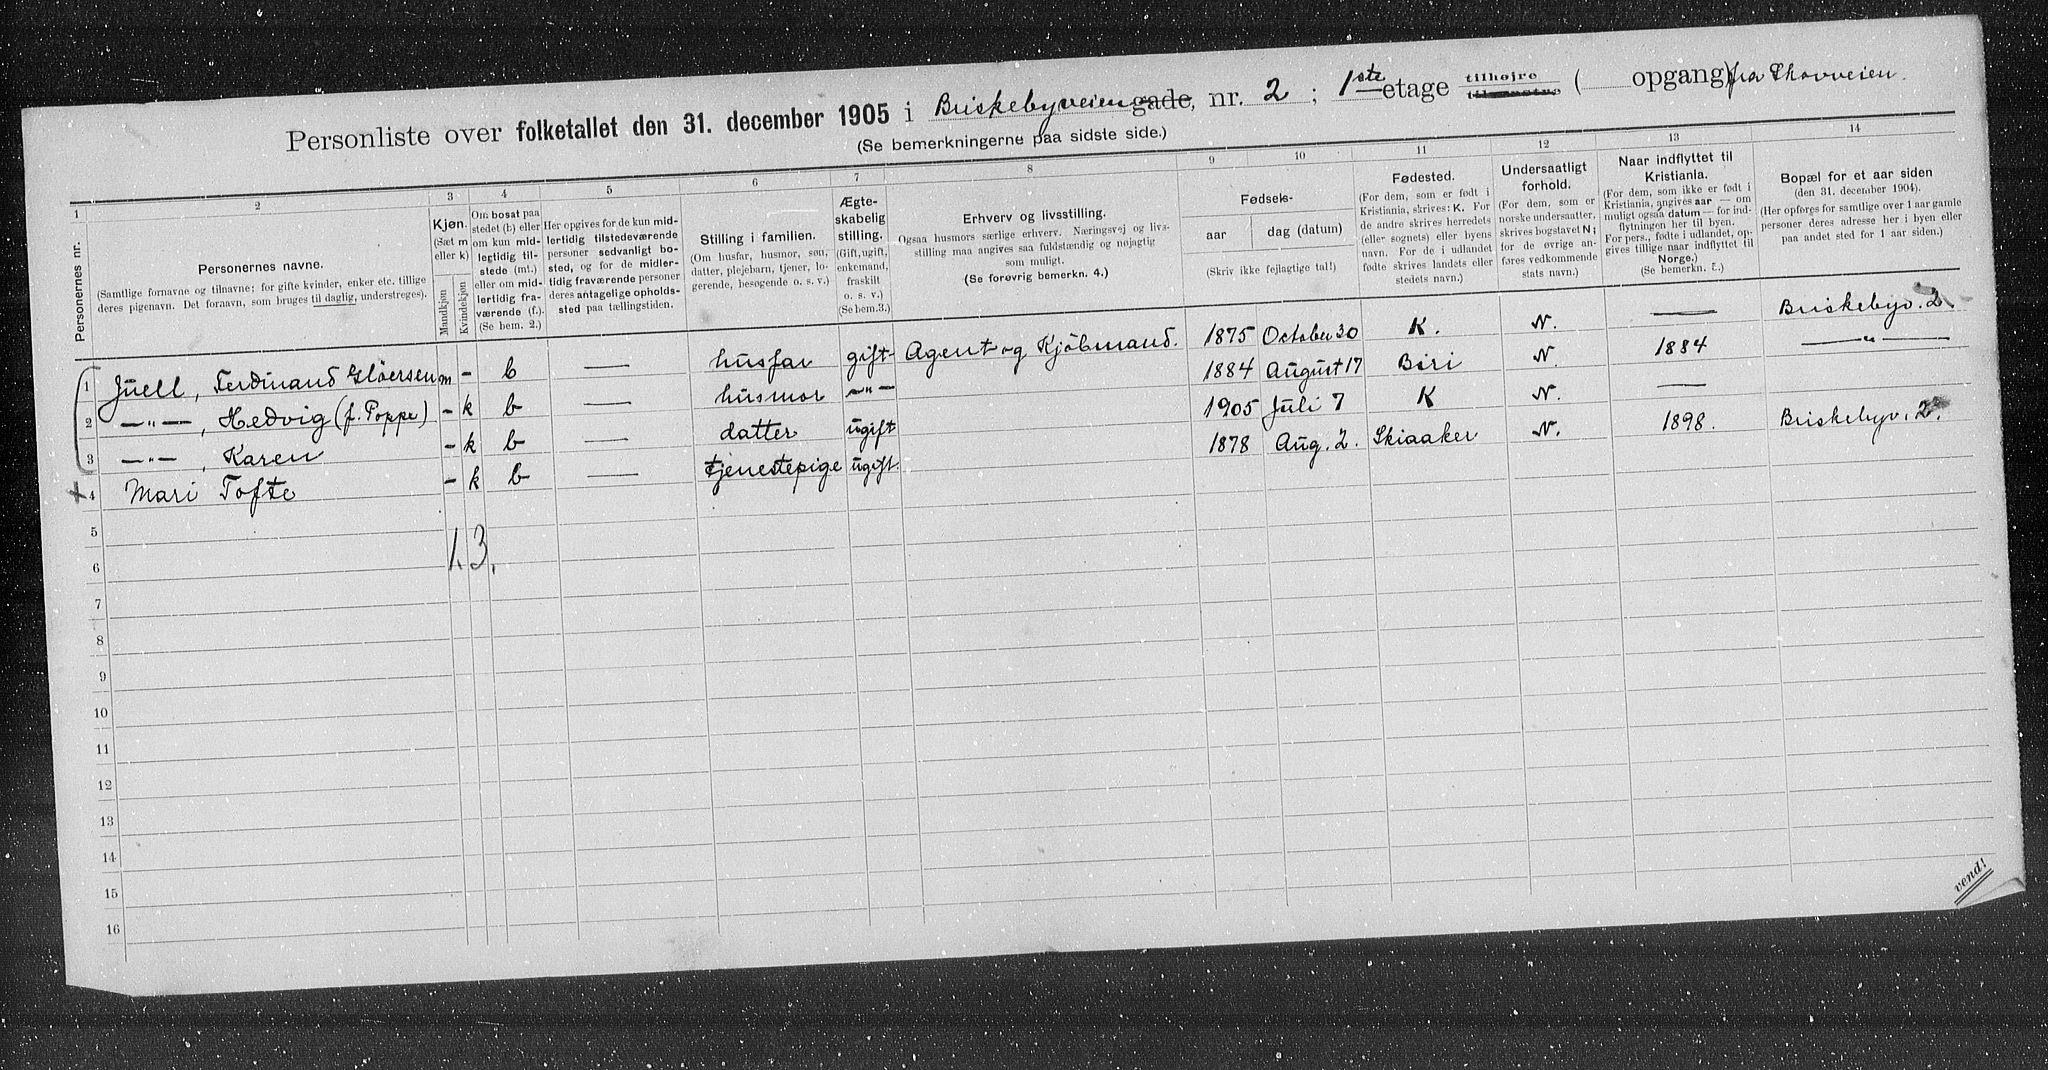 Personliste over folketallet den 31. december 1905 i Briskebyveien gade, nr. 2 ; 1ste etage tilhøjre tilvenstre ( opgang) fra Thovveien.
(Se bemerkningerne paa sidste side.)
1 2 3 4 5 6 7 8 9 10 11 12 13 14
Personernes nr.
Personernes navne.
(Samtlige fornavne og tilnavne; for gifte kvinder, enker etc. tillige
deres pigenavn. Det fornavn, som bruges til daglig, understreges).
Kjøn.
(Sæt m
eller k)
Mandkjøn
Kvindekjøn
Om bosat paa
stedet (b) eller
om kun mid-
lertidig til-
stede (mt.)
eller om mid-
lertidig fra-
værende (f.).
(Se bem. 2.)
Her opgives for de kun mid-
lertidig tilstedeværende
personer sedvanligt bo-
sted, og for de midler-
tidig fraværende personer
deres antagelige opholds-
sted paa tællingstiden.
Stilling i familien.
(Om husfar, husmor, søn,
datter, plejebarn, tjener, lo-
gerende, besøgende o. s. v.)
Ægte-
skabelig
stilling.
(Gift, ugift,
enkemand,
fraskilt
o. s. v.)
(Se bem.3.)
Erhverv og livsstilling.
Ogsaa husmors særlige erhverv. Næringsvej og livs-
stilling maa angives saa fuldstændig og nøjagtig
som muligt.
(Se forøvrig bemerkn. 4.)
Fødsels-
aar
dag (datum)
(Skriv ikke fejlagtige tal!)
Fødested.
(For dem, som er født i
Kristiania, skrives: K. For
de andre skrives herredets
(eller sognets) eller byens
navn. For de i udlandet
fødte skrives landets eller
stedets navn.)
Undersaatligt
forhold.
(For dem, som er
norske undersaatter,
skrives bogstavet N;
for de øvrige an-
føres vedkommende
stats navn.)
Naar indflyttet til
Kristiania.
(For dem, som ikke er født i
Kristiania, angives aar — om
muligt ogsaa datum — for ind-
flytningen her til byen.
For pers., fødte i udlandet, op-
gives tillige naar indflyttet til
Norge.)
Bopæl for et aar siden
(den 31. december 1904).
(Her opføres for samtlige over 1 aar gamle
personer deres adresse her i byen eller
paa andet sted for 1 aar siden.)
1 Juell, Ferdinand Gløersen m - b — husfar gift Agent og Kjøbmand. 1875 October 30 K. N. — Briskebyv. 2
2 —"—, Hedvig (f. Poppe) - k b — husmor —"— 1884 August 17 Biri N. 1884 —"—
3 —"—, Karen - k b — datter ugift 1905 Juli 7 K N. —
4 Mari Tofte - k b — tjenestepige ugift. 1878 Aug. 2. Skiaaker N. 1898. Briskebyv. 2.
5
1. 3.
6
7
8
9
10
11
12
13
14
15
16
vend!